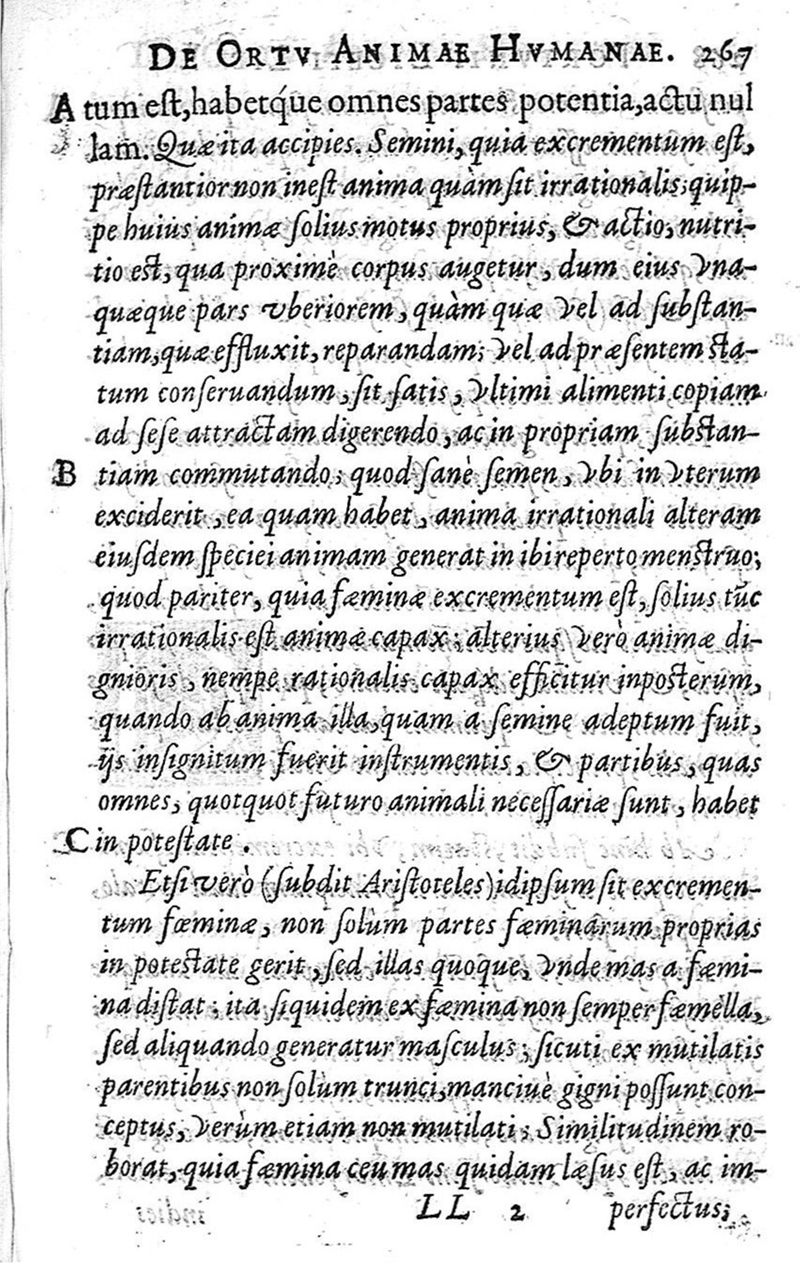 DE ORTV ANIMAE HVMANAE. 267
A tum est, habetq́ue omnes partes potentia, actu nul
lam. Quæ ita accipies. Semini, quia excrementum est,
præstantior non inest anima quàm sit irrationalis; quip-
pe huius animæ solius motus proprius, & actio, nutri-
tio est, qua proximè corpus augetur, dum eius vna-
quæque pars vberiorem, quàm quæ vel ad substan-
tiam, quæ effluxit, reparandam; vel ad præsentem sta-
tum conseruandum, sit satis, vltimi alimenti copiam
ad sese attractam digerendo, ac in propriam substan-
B tiam commutando; quod sanè semen, vbi in vterum
exciderit, ea quam habet, anima irrationali alteram
eiusdem speciei animam generat in ibi reperto menstruo;
quod pariter, quia fæminæ excrementum est, solius tũc
irrationalis est animæ capax; alterius verò animæ di-
gnioris, nempe rationalis capax efficitur inposterum,
quando ab anima illa, quam a semine adeptum fuit,
ijs insignitum fuerit instrumentis, & partibus, quas
omnes, quotquot futuro animali necessariæ sunt, habet
C in potestate.
Etsi verò (subdit Aristoteles) idipsum sit excremen-
tum fœminæ, non solùm partes fæminarum proprias
in potestate gerit, sed illas quoque, vnde mas a fæmi-
na distat; ita siquidem ex fæmina non semper fæmella,
sed aliquando generatur masculus; sicuti ex mutilatis
parentibus non solùm trunci, manciuè gigni possunt con-
ceptus, verùm etiam non mutilati; Similitudinem ro-
borat, quia fæmina ceu mas quidam læsus est, ac im-
LL 2 perfectus;